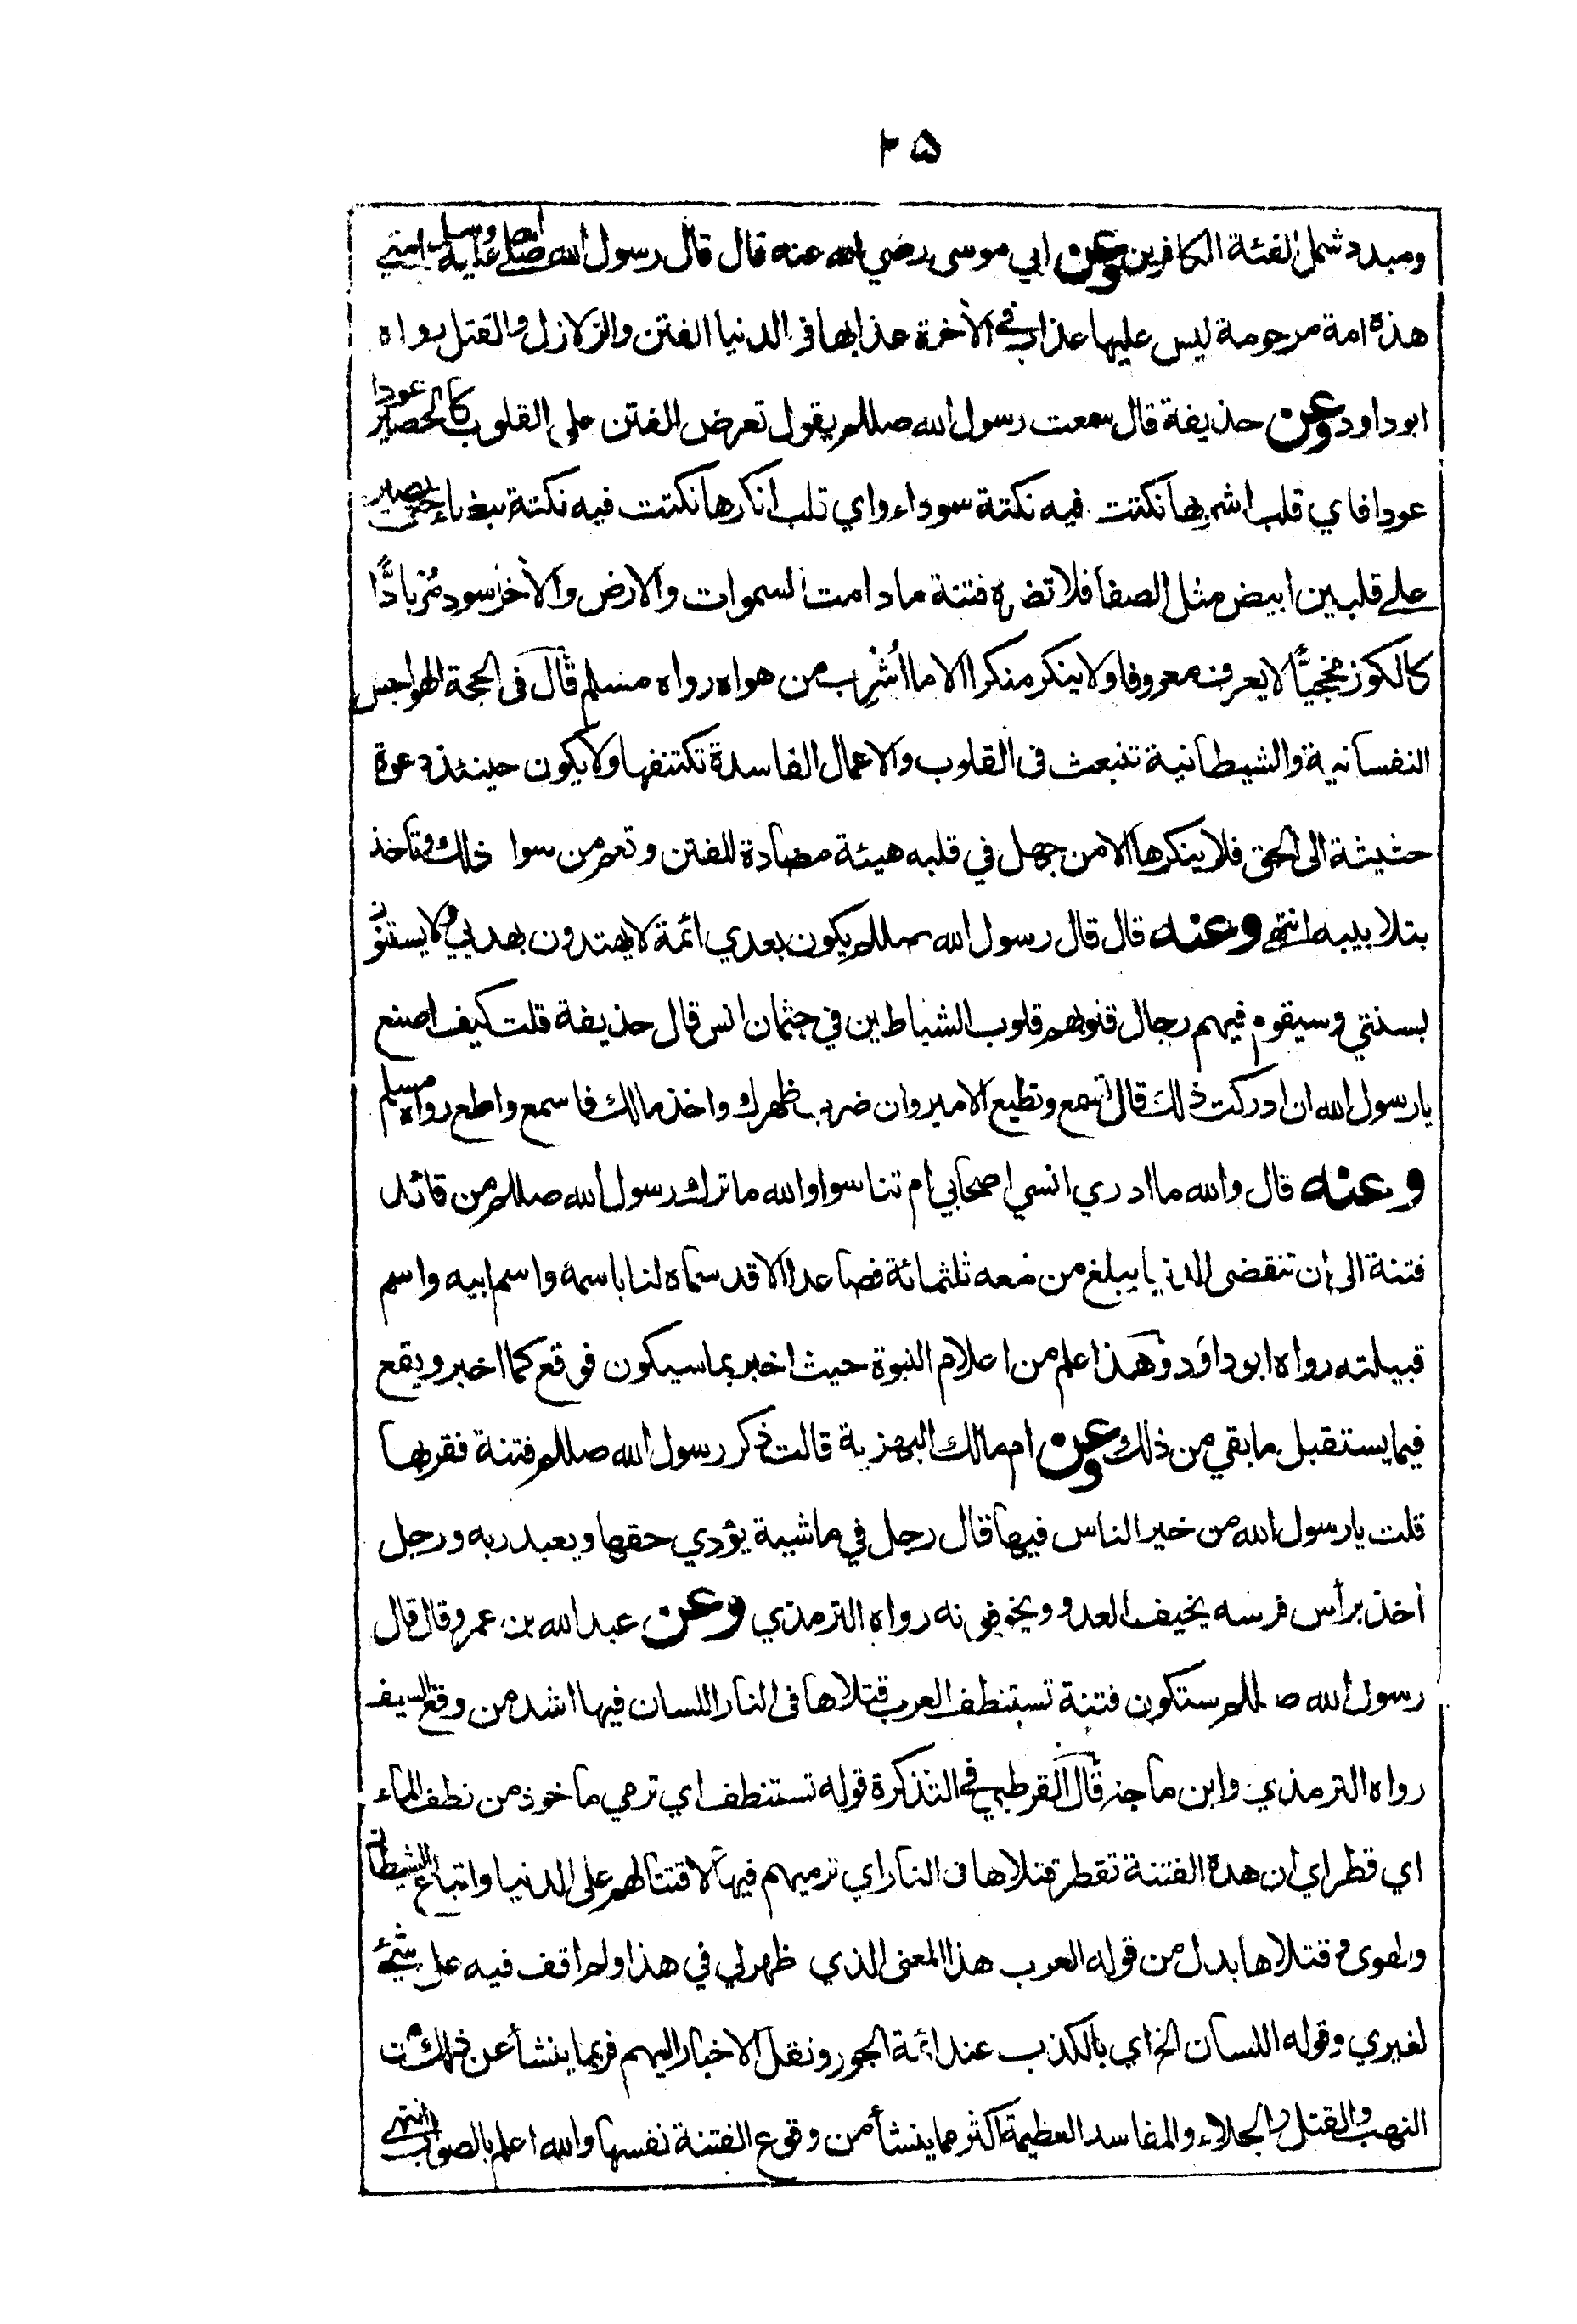 ٢٥
ومبدد شمل الفئة الكافرين وعن ابي موسى رضي الله عنه قال قال رسول الله صلى الله عليه وسلم امتي
هذه امة مرحومة ليس عليها عذاب في الآخرة عذابها في الدنيا الفتن والزلازل والقتل رواه
ابو داود وعن حذيفة قال سمعت رسول الله صللم يقول تعرض الفتن على القلوب كالحصير عودا
عودا فاي قلب اشربها نكتت فيه نكتة سوداء واي قلب انكرها نكتت فيه نكتة بيضاء حتى يصير
على قلبين ابيض مثل الصفا فلا تضره فتنة ما دامت السموات والارض والآخر سود مُربادًّا
كالكوز مُجخيًّا لا يعرف معروفا ولا ينكر منكرا الا ما اُشرِب من هواه رواه مسلم قال في الحجة الهواجس
النفسانية والشيطانية تنبعث في القلوب والاعمال الفاسدة تكتنفها ولا يكون حينئذ دعوة
حثيثة الى الحق فلا ينكرها الا من جهل في قلبه هيئة مضادة للفتن وتعم من سوا ذلك وتاخذ
بتلابيبه انتهى وعنه قال قال رسول الله صللم يكون بعدي ائمة لا يهتدون بهديي ولا يستنون
بسنتي وسيقوم فيهم رجال قلوبهم قلوب الشياطين في جثمان انس قال حذيفة قلت كيف اصنع
يا رسول الله ان ادركت ذلك قال تسمع وتطيع الامير وان ضرب ظهرك واخذ مالك فاسمع واطع رواه مسلم
وعنه قال والله ما ادري انسي اصحابي ام تناسوا والله ما ترك رسول الله صللم من قائد
فتنة الى ان تنقضي الدنيا يبلغ من معه ثلثمائة فصاعدا الا قد سماه لنا باسمه واسم ابيه واسم
قبيلته رواه ابو داود وهذا علم من اعلام النبوة حيث اخبر بما سيكون فوقع كما اخبر ويقع
فيما يستقبل ما بقي من ذلك وعن ام مالك البهزية قالت ذكر رسول الله صللم فتنة فقربها
قلت يا رسول الله من خير الناس فيها قال رجل في ماشية يؤدي حقها ويعبد ربه ورجل
اخذ برأس فرسه يخيف العدو ويخوفونه رواه الترمذي وعن عبد الله بن عمرو قال قال
رسول الله صللم ستكون فتنة تستنطف العرب قتلاها في النار اللسان فيها اشد من وقع السيف
رواه الترمذي وابن ماجه قال القرطبي في التذكرة قوله تستنطف اي ترمي ماخوذ من نطف الماء
اي قطر اي ان هذه الفتنة تقطر قتلاها في النار اي ترميهم فيها لاقتتالهم على الدنيا واتباع الشيطان
والهوى وقتلاها بدل من قوله العرب هذا المعنى الذي ظهر لي في هذا ولم اقف فيه على شيء
لغيري وقوله اللسان الخ اي بالكذب عند ائمة الجور ونقل الاخبار اليهم فربما ينشأ عن ذلك من
النهب والقتل والجلاء والمفاسد العظيمة اكثر مما ينشأ من وقوع الفتنة نفسها والله اعلم بالصواب انتهى